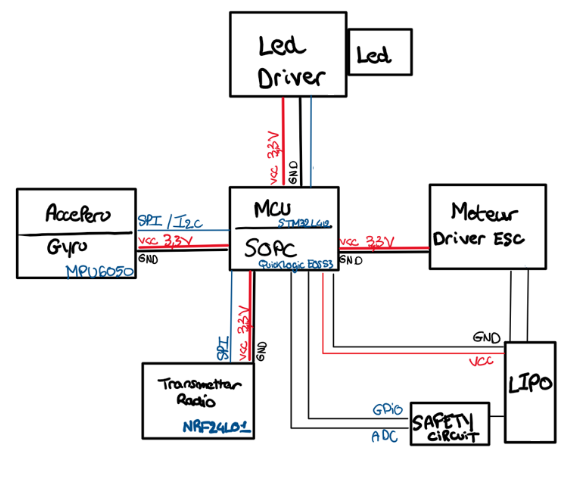 Led
Driver
Led
VCC 3,3V
GND
Accelero
Gyro
MPU6050
SPI / I2C
VCC 3,3V
GND
MCU
STM32L412
SOPC
QuickLogic EOS S3
VCC 3.3V
GND
Moteur
Driver ESC
SPI
VCC 3.3V
GND
Transmetter
Radio
NRF24L01
GND
VCC
LIPO
GPiO
ADC
SAFETY
CiRCUIT